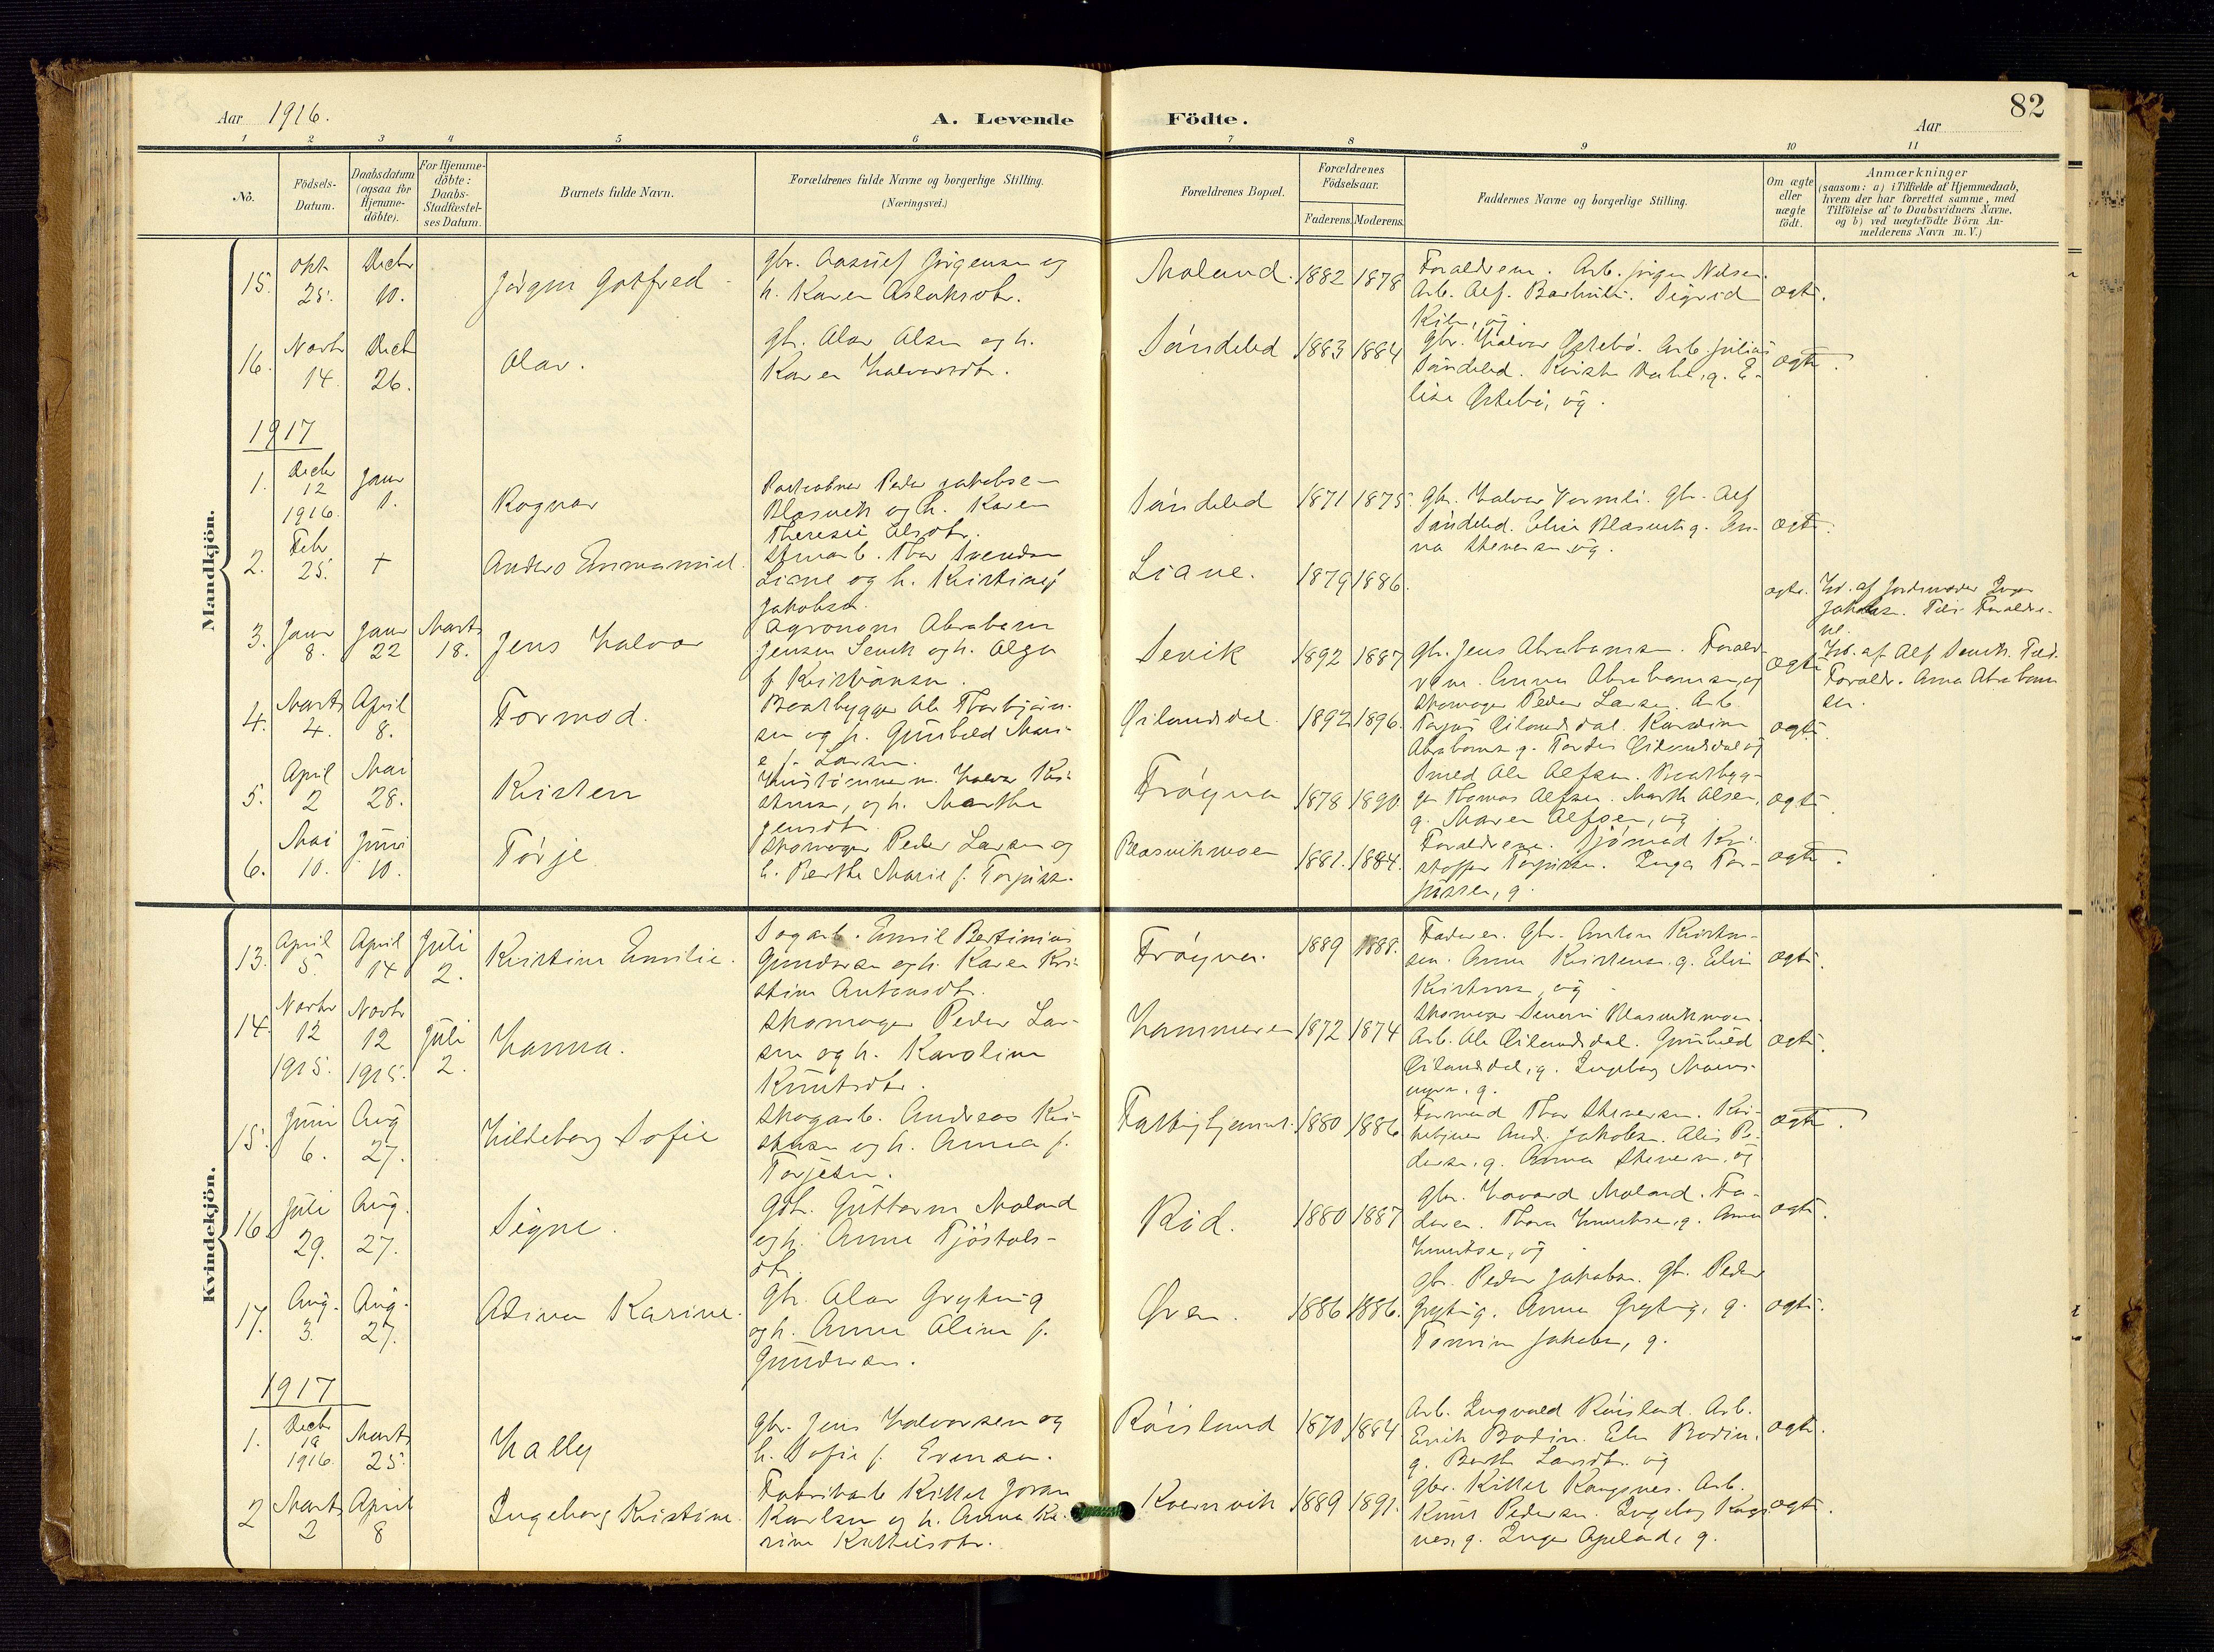 82
Aar 1916.
A. Levende Födte.
Aar
1 2 3 4 5 6 7 8 9 10 11
No.
Födsels-
Datum.
Daabsdatum
(ogsaa for
Hjemme-
döbte).
For Hjemme-
döbte:
Daabs-
Stadfæstel-
ses Datum.
Barnets fulde Navn.
Forældrenes fulde Navne og borgerlige Stilling.
(Næringsvei.)
Forældrenes Bopæl.
Forældrenes
Födselsaar.
Faderens. Moderens.
Faddernes Navne og borgerlige Stilling.
Om ægte
eller
uægte
født.
Anmærkninger
(saasom: a) i Tilfælde af Hjemmedaab,
hvem der har forrettet samme, med
Tilföielse af to Daabsvidners Navne,
og b) ved uægtefödte Börn An-
melderens Navn m. V.)
Mandkjön.
15. Okt. 25. Decbr 10.
Jörgen Gotfred
gbr. Jörgensen og
h. Karen Aslaksdtr.
Moland. 1882 1878
Forældrene. Arb. Jörgen Nilsen.
Arb. Alf. Sigrid
ug.
ægte.
16. Novbr 14. Decbr 26.
Olav.
gbr. Olav Olsen og h.
Karen Halvorsdtr.
Söndeled 1883 1884
gbr. Halvor Arb. Julius
Söndeled. g. E-
lise ug.
ægte.
1917
1. Decbr 12 1916. Janr 1.
Ragnar
Peder Jakobsen
Blasvik og h. Karen
Theresie Olsdtr.
Söndeled 1871 1875.
gbr. Halvor gbr. Alf
Söndeled. Elise Blasvik g. An-
na Stenersen ug.
ægte.
2. Febr 25. +
Anders Emmanuel.
Thor Svendsen
Liane og h. Kristine f.
Jakobsen.
Liane. 1879 1886.
ægte.
Hd. af Jordmoder Inga
Jakobsen. Forældre-
ne.
3. Janr 8. Janr 22 Marts 18.
Jens Halvor
Agronom Abraham
Jensen Sevik og h. Olga
f. Kristiansen.
Sevik 1892 1887
gbr. Jens Abrahamsen. Foræld-
rene. Anna Abrahamsen, ug
ægte
Hd. af Alf Sevik. Fad.
Foræld. Anna Abraham
sen.
4. Marts 4. April 8.
Tormod.
Baatbygger Ole Thorbjörn-
sen og h. Gunhild Mari-
e f. Larsen.
Öilandsdal. 1892 1896.
Skomager Peder Larsen. Arb.
Torjus Öilandsdal. Karoline
Abrahamsen g. Tordis Öilandsdal ug
ægte.
5. April 2 Mai 28.
Kristen
Hustömmerm. Halvor Kri-
stensen, og h. Marthe
Jensdtr.
Fröyna 1878 1890
Smed Ole Alfsen. Baatbyg-
ger Thomas Alfsen. Marthe Olsen,
g. Maren Alfsen, ug
ægte.
6. Mai 10. Juni 10.
Törje
Skomager Peder Larsen og
h. Berthe Marie f. Torjussen.
Blasvikmoen 1881. 1884.
Forældrene. Sjömand Kri-
stoffer Torjussen. Inga Tor-
jussen, g.
ægte.
Kvindekjön.
13. April 5. April 14 Juli 2.
Kristine Emilie.
Sagarb. Emil Bertinius
Gundersen og h. Karen Kri-
stine Antonsdtr.
Fröyna. 1889 1888.
Faderen. gbr. Anton Kristen-
sen. Anne Kristensen g. Elin
Kristensen, ug
ægte.
14. Novbr 12 1915. Novbr 12 1915. Juli 2.
Hanna.
Skomager Peder Lar-
sen og h. Karoline
Knutsdtr.
Hammeren 1872 1874
Skomager Severin Blasvikmoen.
Arb. Ole Öilandsdal. Gunhild
Öilandsdal, g. Ingeborg
g.
ægte.
15. Juni 6. Aug 27.
Hildeborg Sofie
Skogarb. Andreas Kri-
stensen og h. Anna f.
Torjesen.
Fattighjemmet. 1880 1886
Formand Thor Stenersen.
And. Jakobsen. Alis Pe-
dersen, g. Anna Stenersen, ug
ægte.
16. Juli 29. Aug. 27.
Signe.
gbr. Guttorm Moland
og h. Anne Tjöstols-
dtr.
Rød. 1880 1887
gbr. Havard Moland. Fa-
deren. Thora Knutsen, g. Anna
Knutsen, ug
ægte.
17. Aug. 3. Aug. 27.
Adina Karine.
gbr. Olav Gryting
og h. Anne Oline f.
Gundersen.
Øren. 1886 1886.
gbr. Peder Jakobsen. gbr. Peder
Gryting. Anna Gryting, g.
Jakobsen, g.
ægte.
1917
1. Decbr 19 1916. Marts 25.
Hally
gbr. Jens Halvorsen og
h. Sofie f. Evensen.
Röisland 1870 1884
Arb. Ingvald Röisland. Arb.
Erik Bodin. Else Bodin,
g. Berthe Larsdtr. ug
ægte.
2 Marts 2 April 8
Ingeborg Kristine.
Fabrikarb Kittel Joran
Karlsen og h. Anna Ka-
rine Kittilsdtr.
Kvernvik 1889 1891.
gbr. Kittel Rangsnes. Arb.
Knut Pedersen. Ingeborg Rangs-
nes, g. Inger Apeland, g.
ægte.